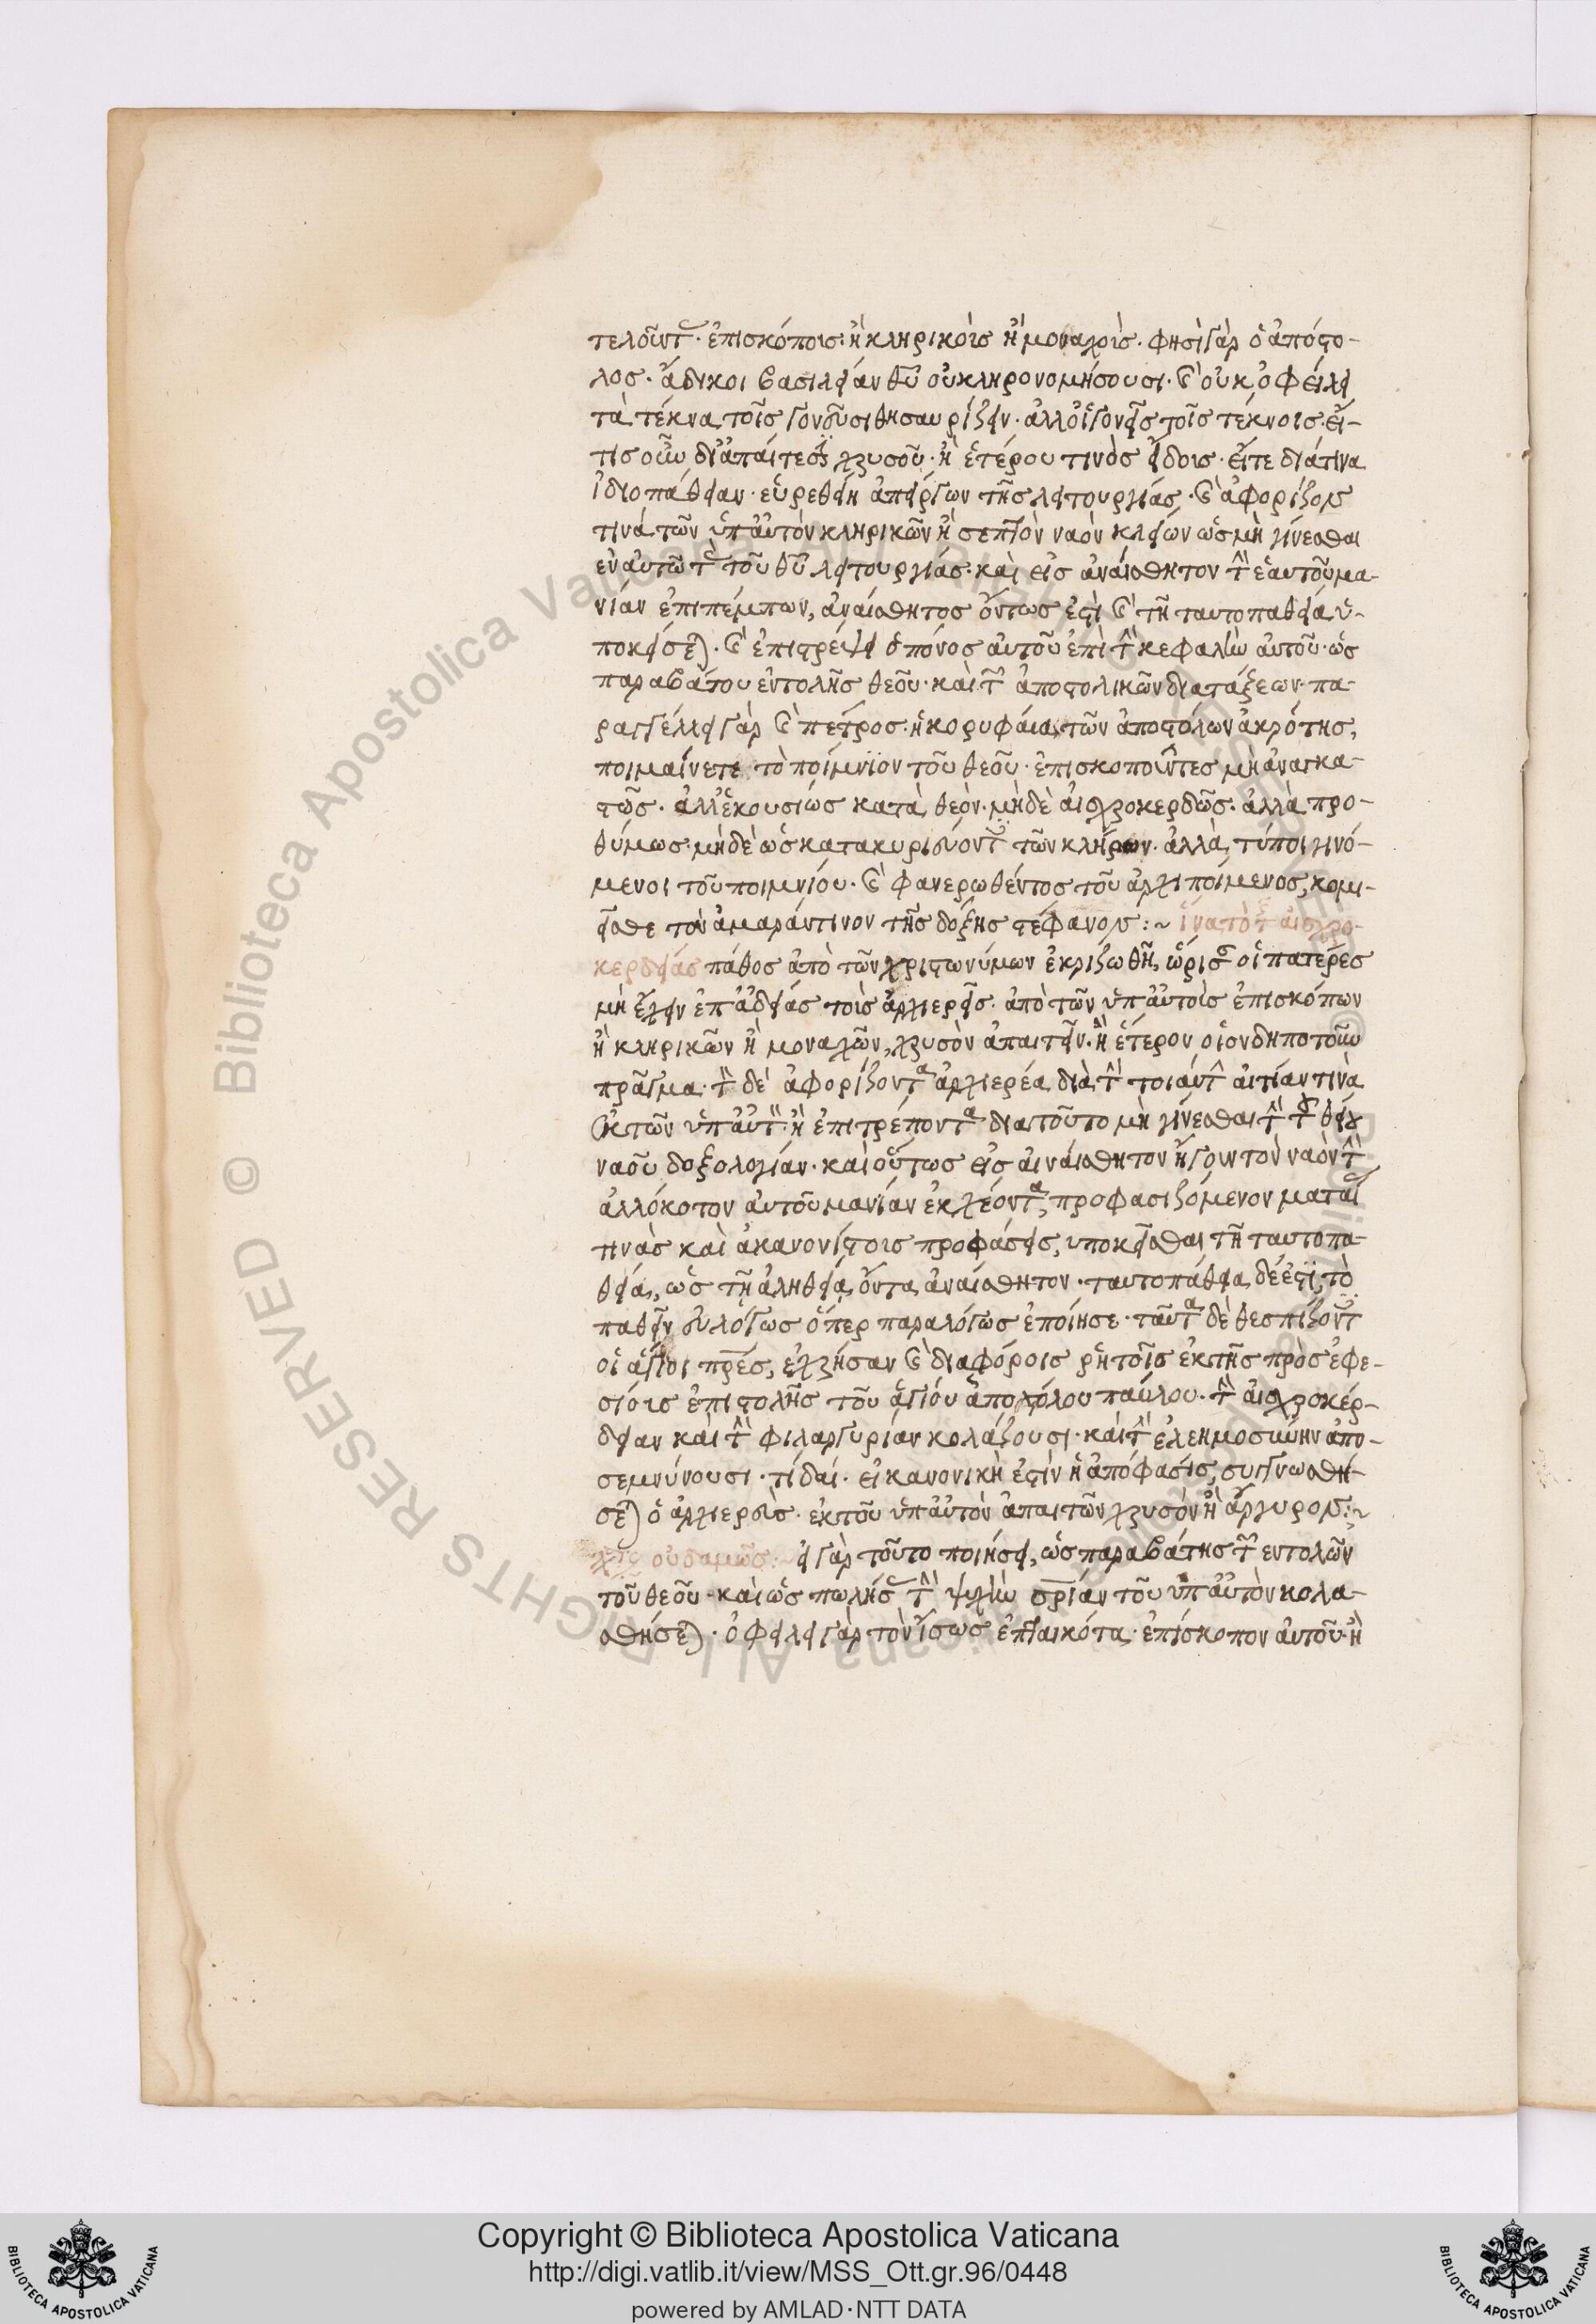 τελοῦντ· ἐπισκόποις· ἢ κληρικοῖς ἢ μοναχοῖς· φησὶ γὰρ ὁ ἀπόστο-
λος· ἄδικοι βασιλείαν θῡ οὐ κληρονομήσουσι· καὶ οὐκ ὀφείλει
τὰ τέκνα τοῖς γονεῦσι θησαυρίζειν· ἀλλ' οἱ γονεῖς τοῖς τέκνοις· εἴ-
τις οὖν δι' ἀπαίτεσιν χρυσοῦ· ἢ ἑτέρου τινὸς εἴδους· εἴτε διά τινα
ἰδιοπάθειαν· εὑρεθείη ἀπείργων τῆς λειτουργίας· καὶ ἀφορίζων
τινά τῶν ὑπ' αὐτὸν κληρικῶν ἢ σεπτὸν ναὸν κλείων ὡς μὴ γίνεσθαι
ἐν αὐτῶ τ τοῦ θῡ λειτουργίας· καὶ εἰς ἀναίσθητον τὴν ἑαυτοῦ μα-
νίαν ἐπιπέμπων, ἀναίσθητος ὄντως ἐστὶ καὶ τῆ ταυτοπαθεία ὑ-
ποκείσεται· καὶ ἐπιστρέψει ὁ πόνος αὐτοῦ ἐπὶ τὴν κεφαλὴν αὐτοῦ· ὡς
παραβάτου ἐντολῆς θεοῦ· καὶ τῶν ἀποστολικῶν διατάξεων· πα-
ραγγέλλει γὰρ καὶ πέτρος· ἡ κορυφαία τῶν ἀποστόλων ἀκρότης,
ποιμαίνετε τὸ ποίμνϊον τοῦ θεοῦ· ἐπισκοποῦντες μὴ ἀναγκα-
στῶς· ἀλλ' ἑκουσίως κατὰ θεὸν· μὴ δὲ αἰσχροκερδῶς· ἀλλὰ προ-
θύμως· μὴ δὲ ὡς κατακυριεύοντες τῶν κλήρων· ἀλλὰ τύποι γινό-
μενοι τοῦ ποιμνίου· καὶ φανερωθέντος τοῦ ἀρχιποίμενος, κομι-
εῖσθε τὸν ἀμαράντινον τῆς δόξης στέφανον :~ ἵνα τὸ τῆς αἰσχρο-
κερδείας πάθος ἀπὸ τῶν χριστωνύμων ἐκριζωθῆ, ὥρισαν οἱ πατέρες
μὴ ἔχειν ἐπ' ἀδείας τοῖς ἀρχιερεῖς· ἀπὸ τῶν ὑπ' αὐτοῖς ἐπισκόπων
ἢ κληρικῶν ἢ μοναχῶν, χρυσὸν ἀπαιτεῖν· ἢ ἕτερον οἱονδηποτοῦν
πρᾶγμα· τὸν δὲ ἀφορίζοντα ἀρχιερέα διὰ τὴν τοιαύτην αἰτίαν τινὰ
ἐκ τῶν ὑπ' αὐτὸν· ἢ ἐπιτρέποντα διατοῦτο μὴ γίνεσθαι τὴν τοῦ θείου
ναοῦ δοξολογίαν· καὶ οὕτως εἰς ἀιναίσθητον ἤγουν τὸν ναὸν τὴν
ἀλλόκοτον αὐτοῦ μανίαν ἐκχέοντα, προφασιζόμενον ματαίας
τινὰς καὶ ἀκανονίστοις προφάσεις, ὑποκεῖσθαι τῆ ταυτοπα-
θεία, ὡς τῆ ἀληθεία ὄντα ἀναίσθητον· ταυτοπάθεια δέ ἐστϊ, τὸ
παθεῖν εὐλόγως ὅπερ παραλόγως ἐποίησε· ταῦτα δὲ θεσπίζοντες
οἱ ἅγιοι πρ̄ες, ἐχρήσαν καὶ διαφόροις ῥητοῖς ἐκ τῆς πρὸς ἐφε-
σίοις ἐπιστολῆς τοῦ ἁγίου ἀποστόλου παύλου· τὴν αἰσχροκέρ-
δειαν καὶ τὴν φιλαργυρίαν κολάζουσι· καὶ τὴν ἐλεημοσύνην ἀπο-
σεμνύνουσι· τί δαί· εἰ κανονικὴ ἐστὶν ἡ ἀπόφασις, συγγνωσθή-
σεται ὁ ἀρχιερεὺς· ἐκ τοῦ ὑπ' αὐτὸν ἀπαιτῶν χρυσὸν ἢ ἄργυρον:~
οὐδαμῶς:~ εἰ γὰρ τοῦτο ποιήσει, ὡς παραβάτης τῶν ἐντολῶν
τοῦ θεοῦ· καὶ ὡς πωλήσας τὴν ψυχὴν σρ̄ίαν τοῦ ὑπ' αὐτὸν κολα-
σθήσεται· ὀφείλει γὰρ τὸν ἴσως ἐπταικότα ἐπίσκοπον αὐτοῦ· ἢ
Copyright © Biblioteca Apostolica Vaticana
http://digi.vatlib.it/view/MSS_Ott.gr.96/0448
powered by AMLAD·NTT DATA